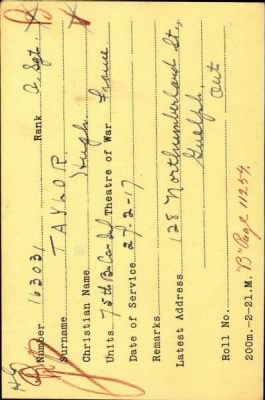 Number 163031 Rank A. Sgt.
Surname TAYLOR.
Christian Name Hugh
Units 75th Bn. Can. Inf. Theatre of War France
Date of Service 27-2-17
Remarks
Latest Address 128 Northumberland St.,
Guelph,
Ont
Roll No. "B" Page 11254.
200m.-2-21.M.